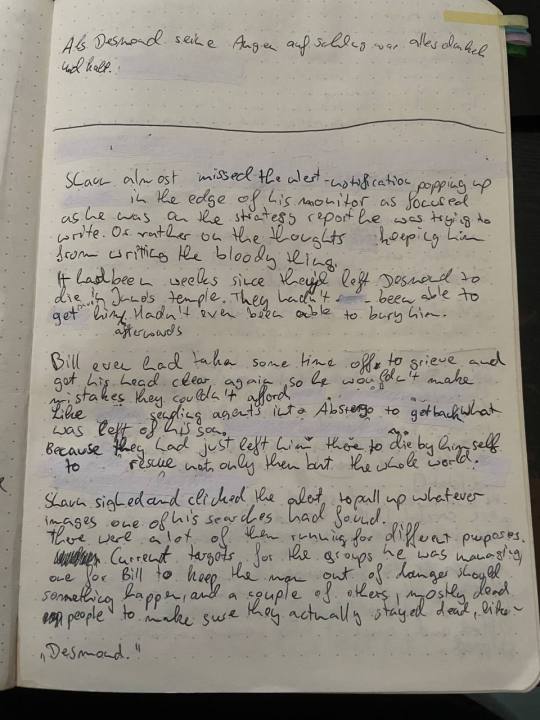 Als Desmond seine Augen aufschlug war alles dunkel
und kalt.
Shaun almost missed the alert-notification popping up
in the edge of his monitor as focused
as he was on the strategy report he was trying to
write. Or rather on the thoughts keeping him
from writing the bloody thing.
It had been weeks since they'd left Desmond to
die in Juno's temple. They hadn't been able to
get him. Hadn't even been able to bury him.
afterwards
Bill even had taken some time off to grieve and
get his head clear again, so he wouldn't make
mistakes they couldn't afford
Like sending agents into Abstergo to get back what
was left of his son.
Because they had just left him there to die by himself
to rescue not only them but the whole world.
Shaun sighed and clicked the alert to pull up whatever
images one of his searches had found.
There were a lot of them running for different purposes.
Current targets for the groups he was managing,
one for Bill to keep the man out of danger should
something happen, and a couple of others, mostly dead
people to make sure they actually stayed dead, like-
„Desmond."